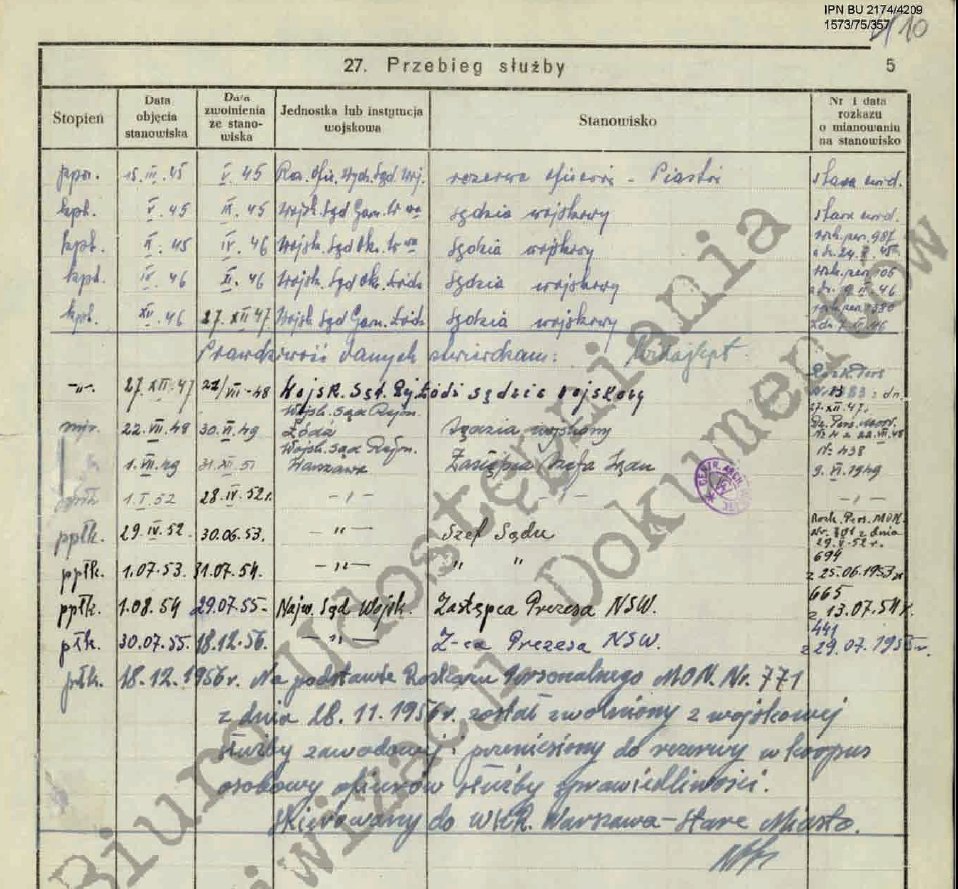 IPN BU 2174/4209
1573/75/357
10
27. Przebieg służby 5
Stopień
Data objęcia stanowiska
Data zwolnienia ze stano-wiska
Jednostka lub instytucja wojskowa
Stanowisko
Nr i data rozkazu o mianowaniu na stanowisko
15. III. 45 V. 45 rezerwa Piastów
kpt. V. 45 Wojsk. Sąd Garn. W-wa sędzia wojskowy
kpt. 45 IV. 46 Wojsk. Sąd Okr. W-wa sędzia wojskowy rozk. pers. 987
kpt. IV. 46 46 Wojsk. Sąd Okr. Łódź sędzia wojskowy rozk. pers.
kpt. XII. 46 27. XII 47 Wojsk. Sąd Garn. Łódź sędzia wojskowy
Prawdziwość danych stwierdzam:
-"- 27. XII. 47 22/VII-48 Wojsk. Sąd Rej. Łódź sędzia wojskowy Rozk. Pers
27. XII. 47 r.
mjr. 22. VII. 48 30. VI. 49 Wojsk. Sąd Rejon. Łódź Sędzia wojskowy
1. VII. 49 31. XII. 51 Wojsk. Sąd Rejon. Warszawa Zastępca Szefa Sądu Nr 438
9. VI. 1949
1. I. 52 28. IV. 52r. - " - - " - - " -
ppłk. 29. IV. 52. 30.06.53. - " - Szef Sądu Rozk. Pers. MON.
z dnia
ppłk. 1.07.53. 31.07.54. - " - " " 694
z 25.06.1953 r
ppłk. 1.08.54 29.07.55- Najw. Sąd Wojsk. Zastępca Prezesa NSW. 665
z 13.07.54 r.
płk. 30.07.55. 18.12.56. - " - Z-ca Prezesa NSW. 441
z 29.07.1955 r.
płk. 18.12.1956 r. Na podstawie Rozkazu Personalnego MON. Nr. 771
z dnia 28.11.1956 r. został zwolniony z wojskowej
służby zawodowej i przeniesiony do rezerwy w korpus
osobowy oficerów służby sprawiedliwości.
Skierowany do WKR. Warszawa-Stare Miasto.
Biuro Udostępniania
i Archiwizacji Dokumentów